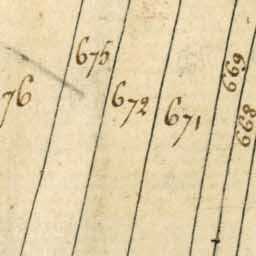 76
675
672
671
669
668